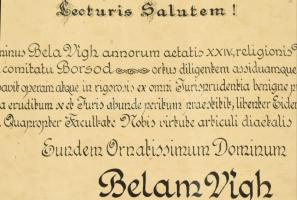 Lecturis Salutem!
minus Bela Vigh annorum aetatis XXIV, religionis
comitatu Borsod ortus diligentem assiduamque
navit operam atque in rigorosis ex omni Jurisprudentia benigne
a eruditum sc et Juris abunde peritum praestitit, libenter Eidem
Quapropter Facultate Nobis virtute articuli diaetalis
Eundem Ornatissimum Dominum
Belam Vigh